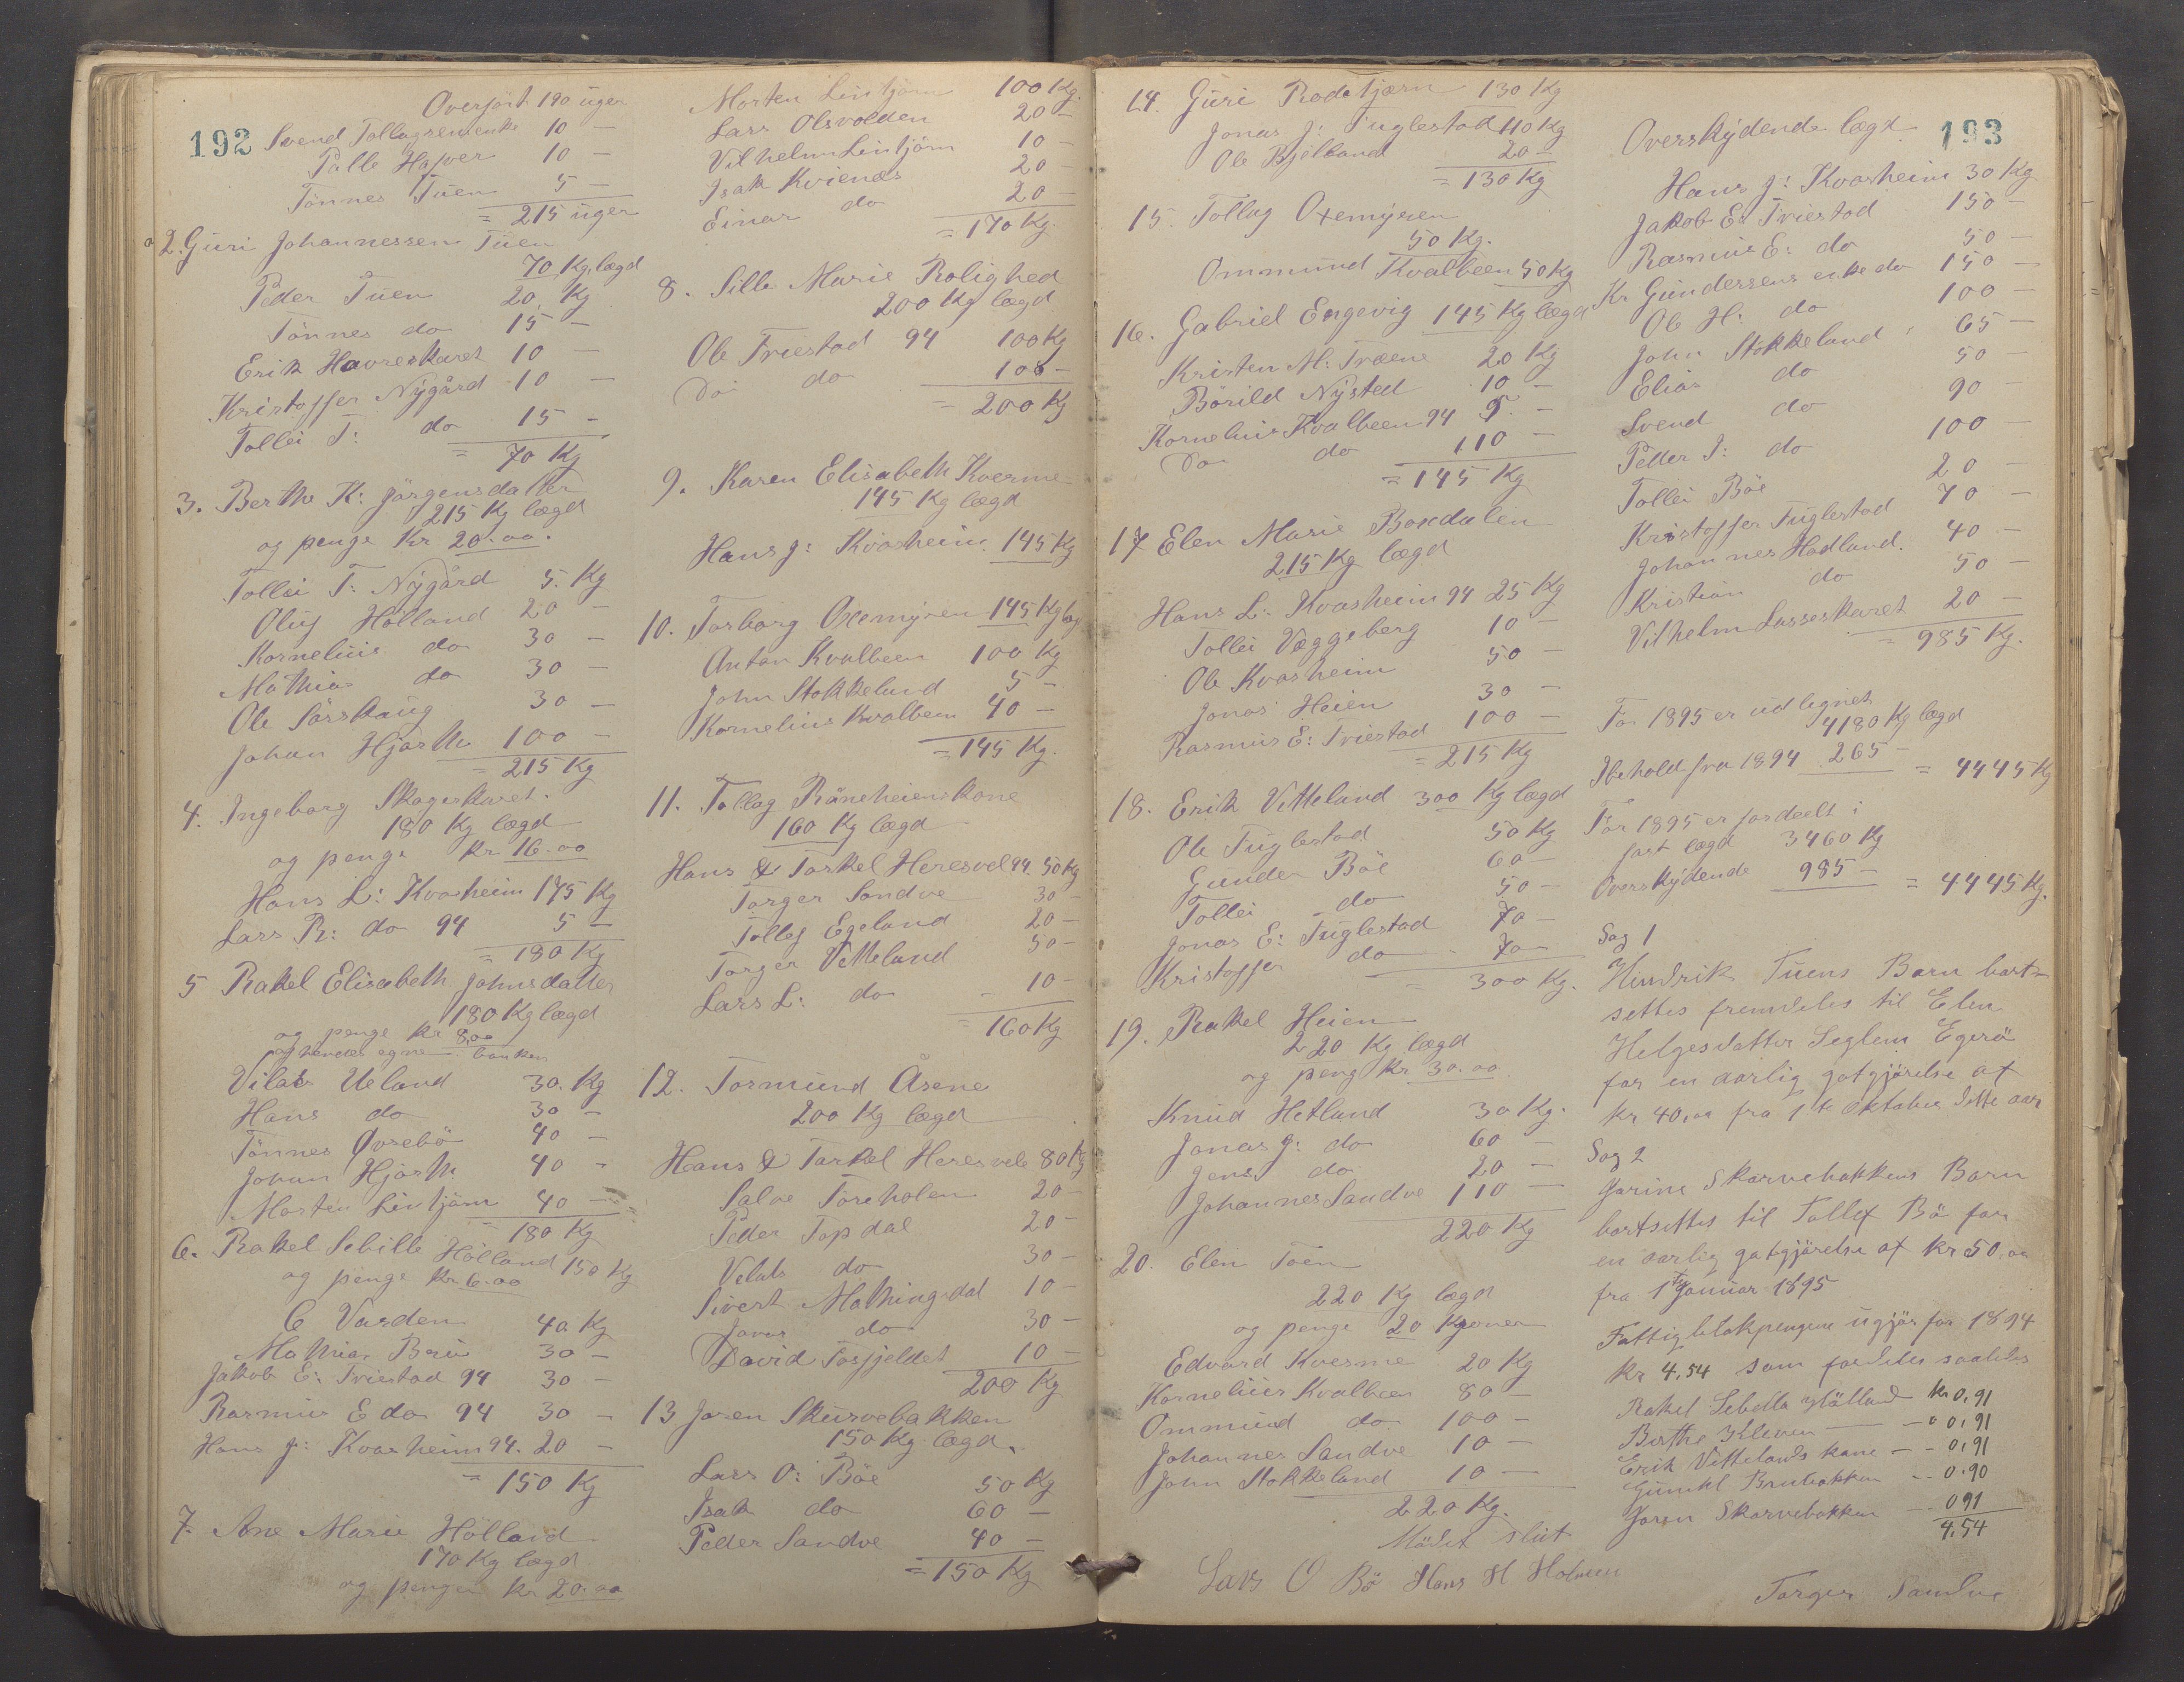 192
Overfört 190 uger
Svend Tollagsens enke 10 —
Palle Hafver 10 —
Tönnes Tuen 5 —
= 215 uger
2. Guri Johannessen Tuen
70 Kg lægd
Peder Tuen 20 Kg
Tönnes do 15 —
Erik Havreskaret 10 —
Kristoffer Nygård 10 —
Tollei T: do 15 —
= 70 Kg
3. Berthe K: Jörgensdatter
215 Kg lægd
og penge Kr 20.00.
Tollei T: Nygård 5. Kg
Oluf Hölland 20 —
Kornelius do 30 —
Mathias do 30 —
Ole Sörskaug 30 —
Johan Hjorth 100 —
= 215 Kg
4. Ingeborg Skageskaret.
180 Kg lægd
og penge kr 16.00
Hans L: Kvasheim 175 Kg
Lars R: do 94 5 —
= 180 Kg
5 Rakel Elisabeth Johnsdatter
180 Kg lægd
og penge kr 8,00
Vilats Ueland 30. Kg
Hans do 30 —
Tönnes Øvrebö 40 —
Johan Hjorth 40 —
Morten Lintjörn 40 —
= 180 Kg
6. Rakel Sebille Hölland 150 Kg
og penge Kr 6.00
C Varden 40 Kg
Mathias Bru 30 —
Jakob E: Triestad 94 30 —
Rasmus E do 94 30 —
Hans J: Kvasheim 94. 20 —
= 150 Kg
7. Ane Marie Hölland
170 Kg lægd
og penge kr 20.00
Morten Lintjörn 100 Kg.
Lars Olsvolden 20 —
Vilhelm Lintjörn 10 —
Isak Kvienæs 20 —
Einar do 20 —
= 170 Kg.
8. Sille Marie Rolighed
200 Kg lægd
Ole Triestad 94 100 Kg
Do do 100 —
= 200 Kg
9. Karen Elisabeth Kverme
145 Kg lægd
Hans J: Kvasheim 145 Kg
10. Torborg Oxemyren 145 Kg læg
Anton Kvalbeen 100 Kg
John Stokkeland 5 —
Kornelius Kvalbeen 40 —
= 145 Kg.
11. Tollag Råneheiens kone
160 Kg lægd
Hans & Torkel Heresvel 94. 50 Kg
Torger Sandve 30 —
Tollef Egeland 20 —
Torger Vetteland 50 —
Lars L: do 10 —
= 160 Kg
12. Tormund Åsene
200 Kg lægd
Hans & Torkel Heresvele 80 Kg
Salve Toreholen 20 —
Peder Topdal 20 —
Velats do 30 —
Sivert Mathingsdal 10 —
Jonas do 30 —
David Tosfjeldet 10 —
200 Kg
13 Joren Skurvebakken
150 Kg lægd.
Lars O: Böe 50 Kg
Isak do 60 —
Peder Sandve 40 —
= 150 Kg
14. Guri Rodetjærn 130 Kg
Jonas J: Fuglestad 110 Kg
Ole Bjelland 20 —
= 130 Kg
15. Tollag Oxemyren
50 Kg.
Ommund Kvalbeen 50 Kg
16. Gabriel Engevig 145 Kg lægd
Kristen M: Træene 20 Kg
Börild Nysted 10 —
Kornelius Kvalbeen 94 5 —
Do do 110 —
= 145 Kg
17 Elen Marie Boxdalen
215 Kg lægd
Hans L: Kvasheim 94 25 Kg
Tollei Væggeberg 10 —
Ole Kvasheim 50 —
Jonas Heien 30 —
Rasmus E: Triestad 100 —
= 215 Kg
18. Erik Vetteland 300 Kg lægd
Ole Fuglestad 50 Kg
Gunder Böe 60 —
Tollei do 50 —
Jonas E: Fuglestad 70 —
Kristoffer do 70 —
= 300 Kg.
19. Rakel Heien
220 Kg lægd
og peng Kr 30.00
Knud Hetland 30 Kg.
Jonas J: do 60 —
Jens do 20 —
Johannes Sandve 110 —
220 Kg
20. Elen Toen
220 Kg lægd
og penge 20 Kroner
Edvard Kverme 20 Kg
Kornelius Kvalbeen 80 —
Ommund do 100 —
Johannes Sandve 10 —
John Stokkeland 10 —
220 Kg.
Mödet slut
Lars O Bö Hans H Holmen
193
Overskydende lægd
Hans J: Kvasheim 30 Kg
Jakob E: Triestad 150 —
Rasmus E: do 50 —
Kr Gundersens enke do 150 —
Ole H: do 100 —
John Stokkeland 65 —
Elias do 50 —
Svend do 90 —
Peder J: do 100 —
Tollei Böe 20 —
Kristoffer Fuglestad 70 —
Johannes Hadland. 40 —
Kristian do 50 —
Vilhelm Lasseskaret 20 —
= 985 Kg.
For 1895 er udlignet
4180 Kg lægd
Ibehold fra 1894 265 — = 4445 Kg
For 1895 er fordeelt i
fast lægd 3460 Kg
Overskydende 985 — = 4445 Kg.
Sag 1
Hendrik Tuens Barn bort-
settes fremdeles til Elen
Helgesdatter Seglem Egerö
for en aarlig gotgjörelse af
kr 40,00 fra 1te Oktober dette aar
Sag 2
Jorine Skarvebakkens Barn
bortsettes til Tollef Bö for
en aarlig gotgjörelse af kr 50,00
fra 1ste Januar 1895
Fattigblokpengene ugjör for 1894
kr 4,54 som fordeles saaledes
Rakel Sebella Hölland kr 0,91
Berthe Kleven — " 0,91
Erik Vettelands kone — - 0,91
Gunild Brubakken - - 0.90
Joren Skarvebakken — - 091
4,54
Torger Sandve